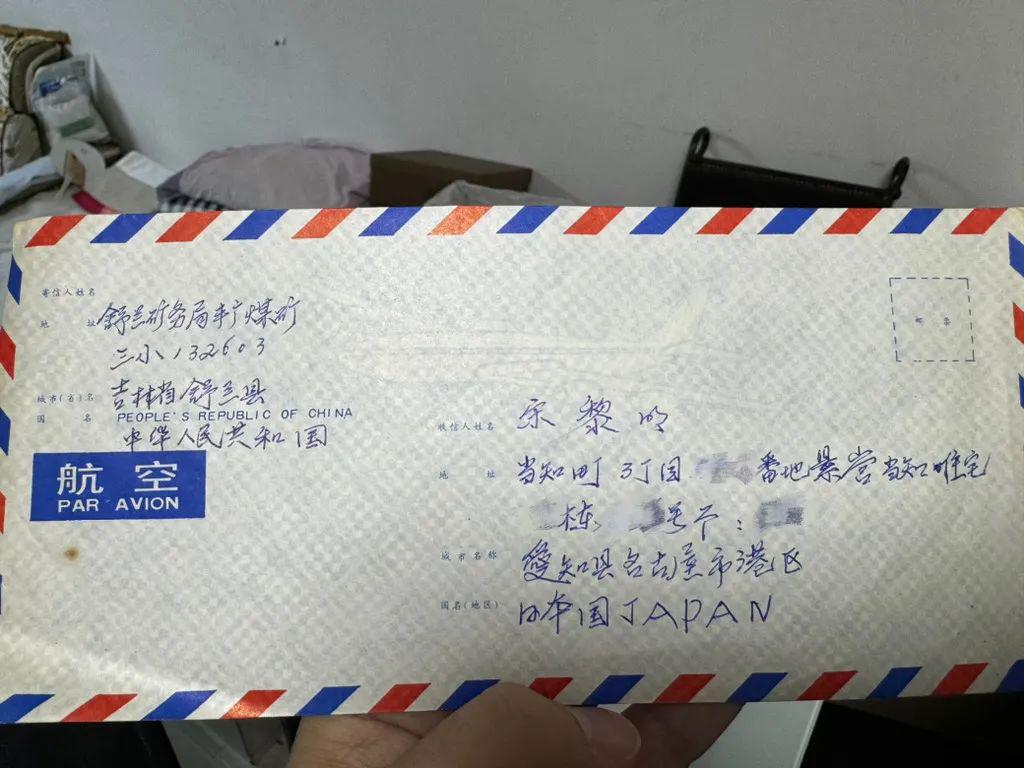 寄信人姓名
地 址 舒兰矿务局丰广煤矿
三小 132603
城市(省)名 吉林省舒兰县
国 名 PEOPLE'S REPUBLIC OF CHINA
中华人民共和国
航空
PAR AVION
邮 票
收信人姓名 宋黎明
地 址 当知町 3丁目 番地县营当知住宅
栋 号 〒:
城市名称 愛知县名古屋市港区
国名(地区) 日本国JAPAN